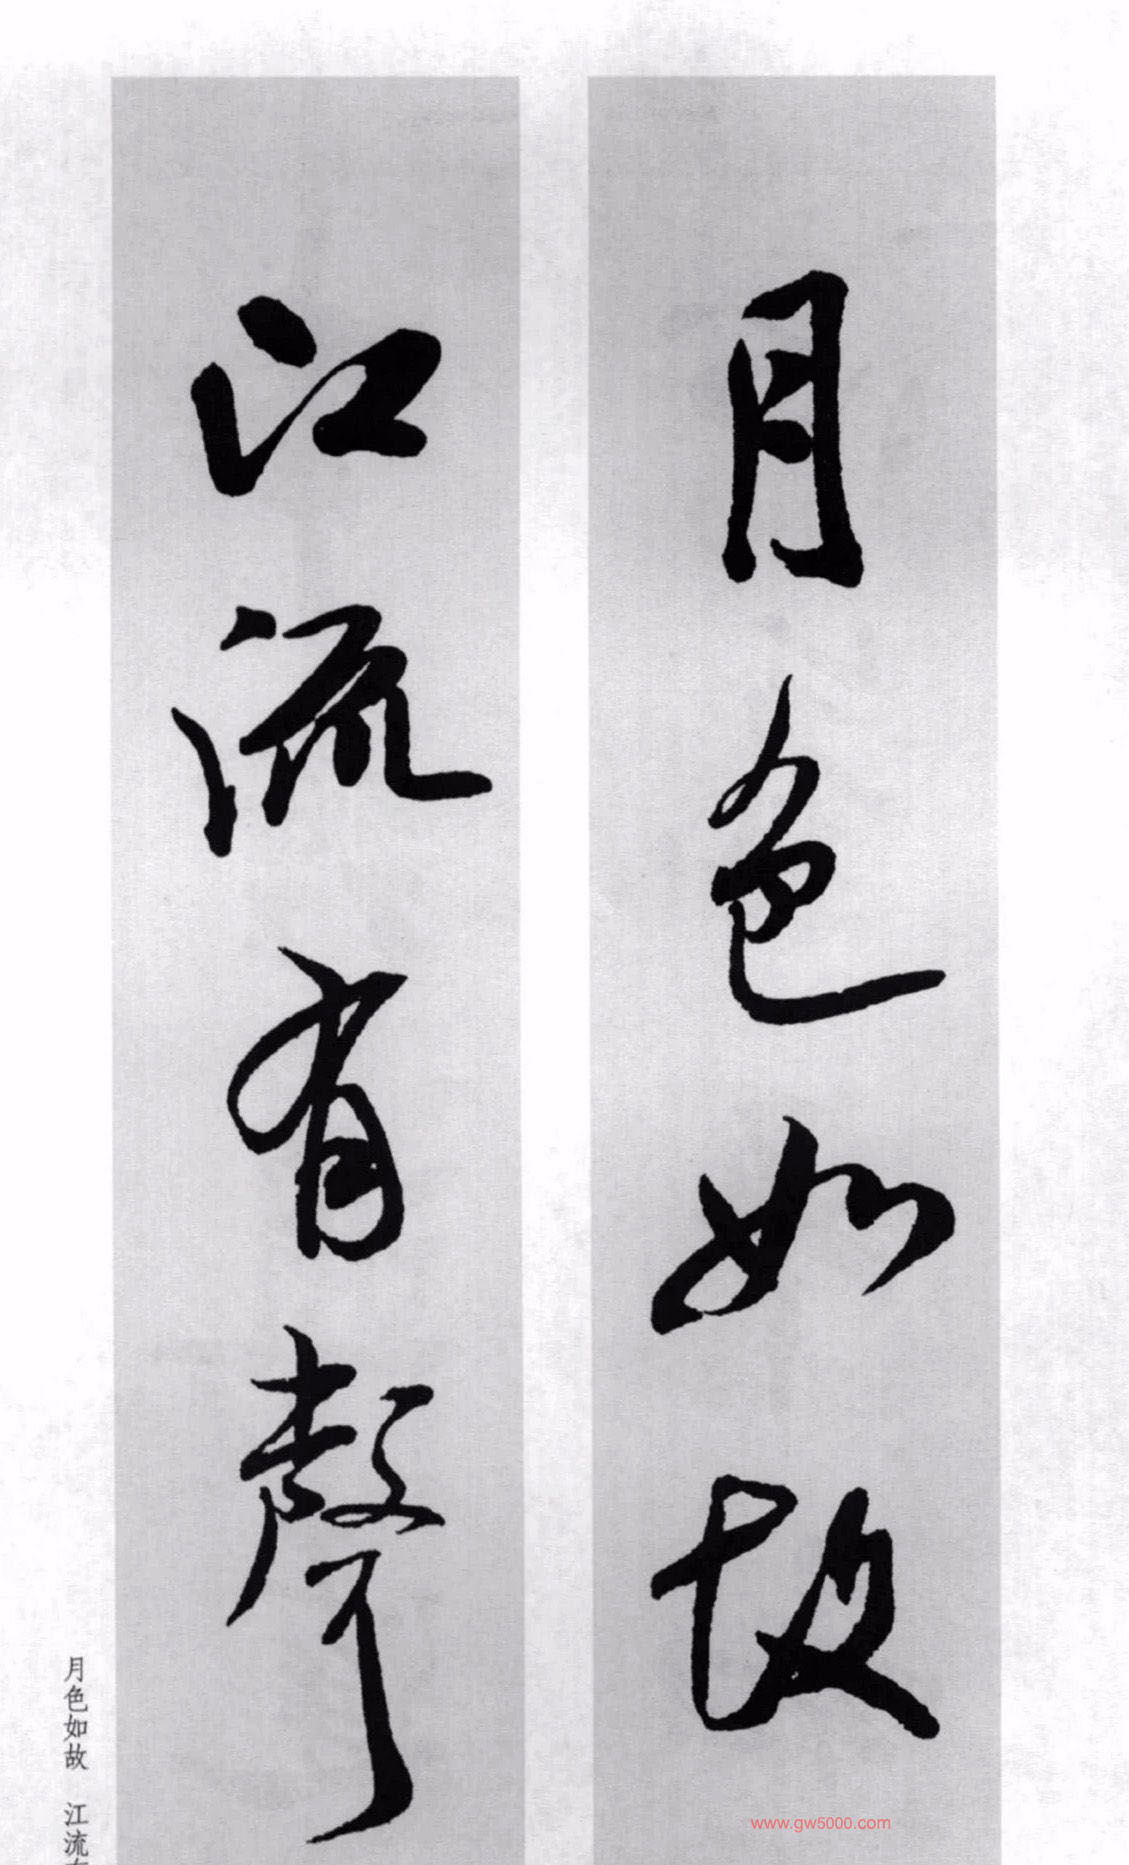 月色如故
江流有聲
月色如故 江流
www.gw5000.com